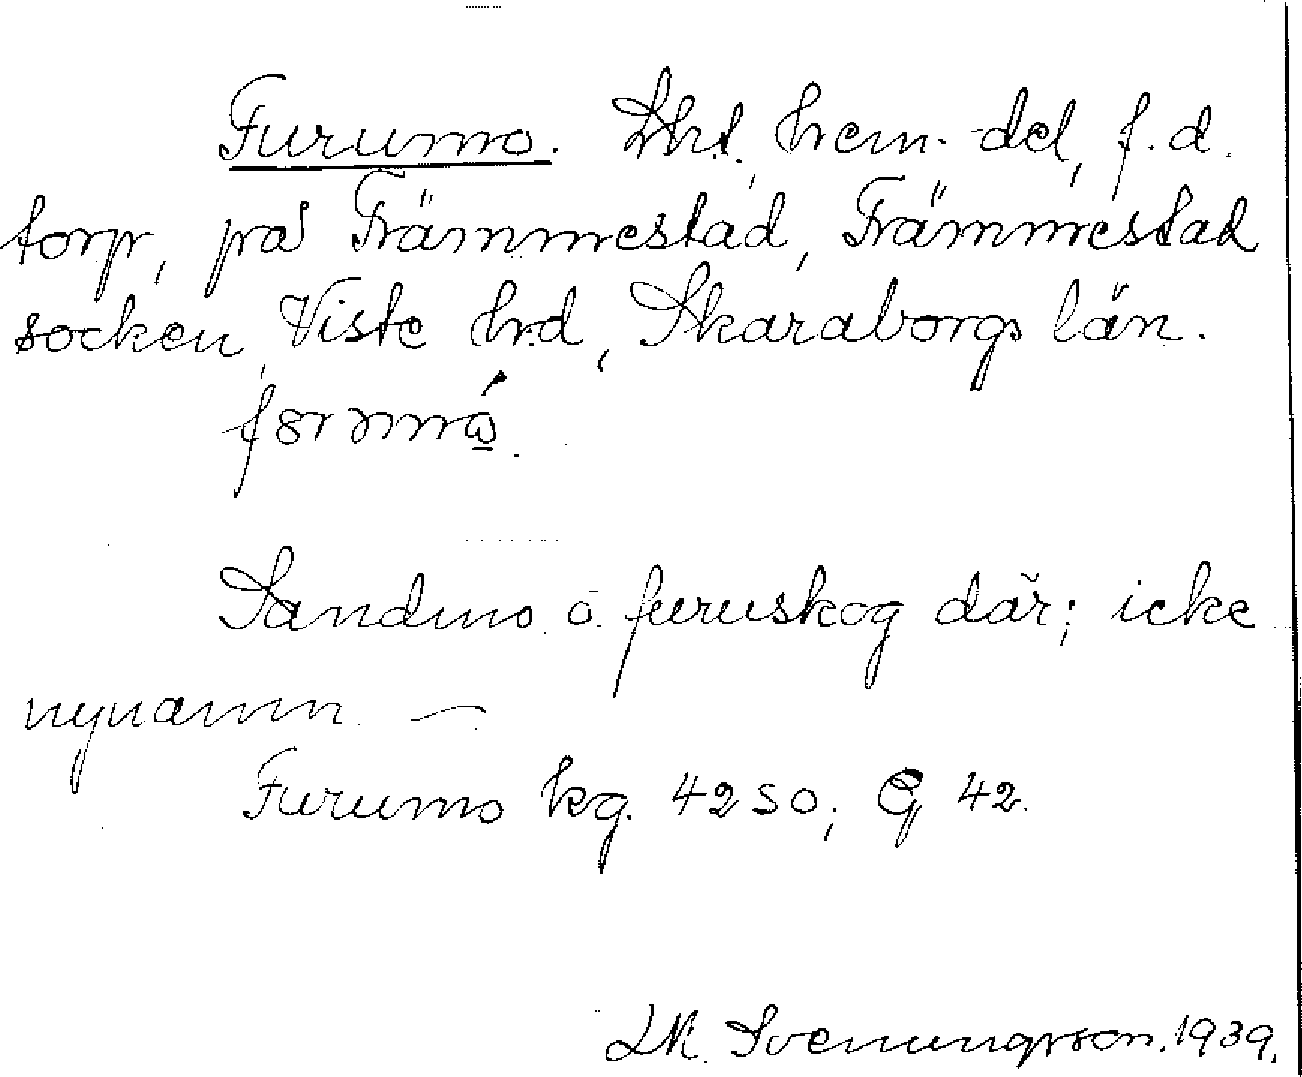 Furumo. Lht, hem.del, f.d.
torp, på Främmestad, Främmestad
socken, Viste hrd, Skaraborgs län.
Sandmo o. furuskog där; icke
nynamn. —
Furumo kg. 4250; G 42.
LM. Svenungsson. 1939.